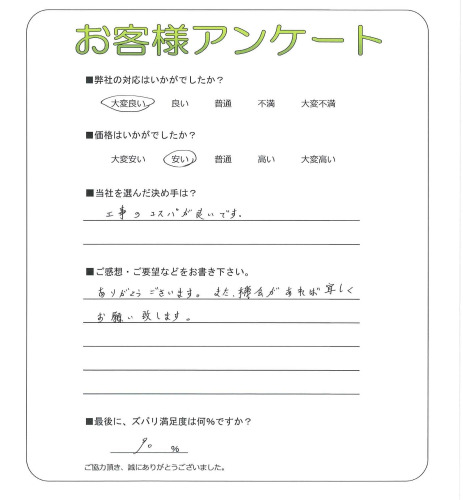 お客様アンケート
■弊社の対応はいかがでしたか？
大変良い 良い 普通 不満 大変不満
■価格はいかがでしたか？
大変安い 安い 普通 高い 大変高い
■当社を選んだ決め手は？
工事のコスパが良いです。
■ご感想・ご要望などをお書き下さい。
ありがとうございます。また、機会があれば宜しく
お願い致します。
■最後に、ズバリ満足度は何％ですか？
90 ％
ご協力頂き、誠にありがとうございました。